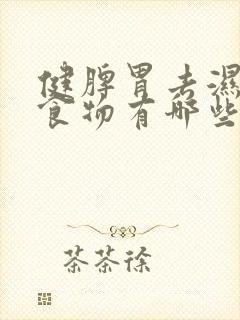 健脾胃去濕
食物有哪些
茶茶徐